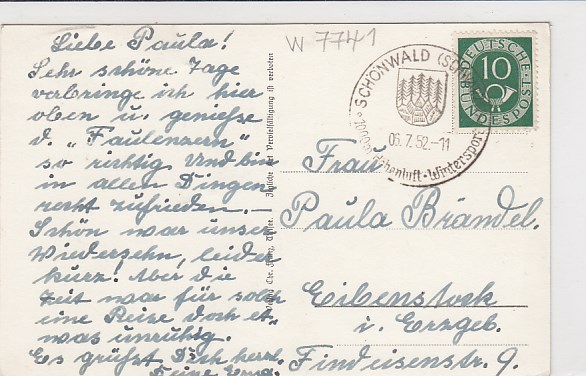 W 7741
Liebe Paula!
Sehr schöne Tage
verbringe ich hier
oben u. genieße
d. "Faulenzern"
so richtig. Und bin
in allen Dingen
recht zufrieden. —
Schön war unser
Wiedersehn, leider
kurz! Aber die
Zeit war für solch
eine Reise doch et-
was unruhig.
Es grüßt Dich herzl.
Deine Erna.
Jegliche Art Vervielfältigung ist verboten
SCHÖNWALD (SCHW
06.7.52.-11
1000m Höhenluft · Wintersport
DEUTSCHE
10
BUNDESPOST
Frau
Paula Brändel.
Eibenstock
i. Erzgeb.
Findeisenstr. 9.